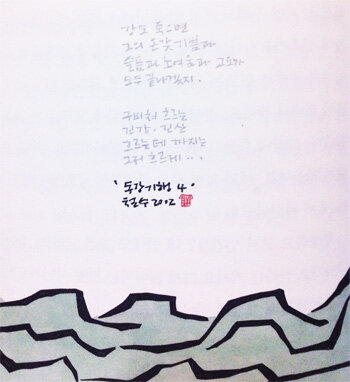 강도 죽으면
그의 온갖 기쁨과
슬픔과 노여움과 고요가
모두 끝나겠지.
구비쳐 흐르는
긴 강, 긴 산
흐르는데 까지는
그저 흐르게...
'동강기행 4'
철수 2002